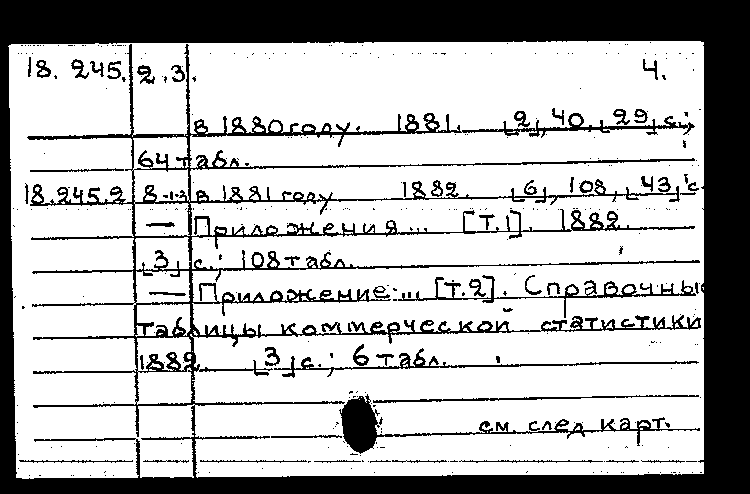 18. 245. 2.3. 4.
в 1880 году. 1881. [2], 40, [29] с.;
64 табл.
18.245.2 8-13 в 1881 году 1882. [6], 108, [43] с.
— Приложения... [Т.1]. 1882.
[3] с.; 108 табл.
— Приложение... [Т.2]. Справочны
таблицы коммерческой статистики
1882. [3] с.; 6 табл.
см. след карт.